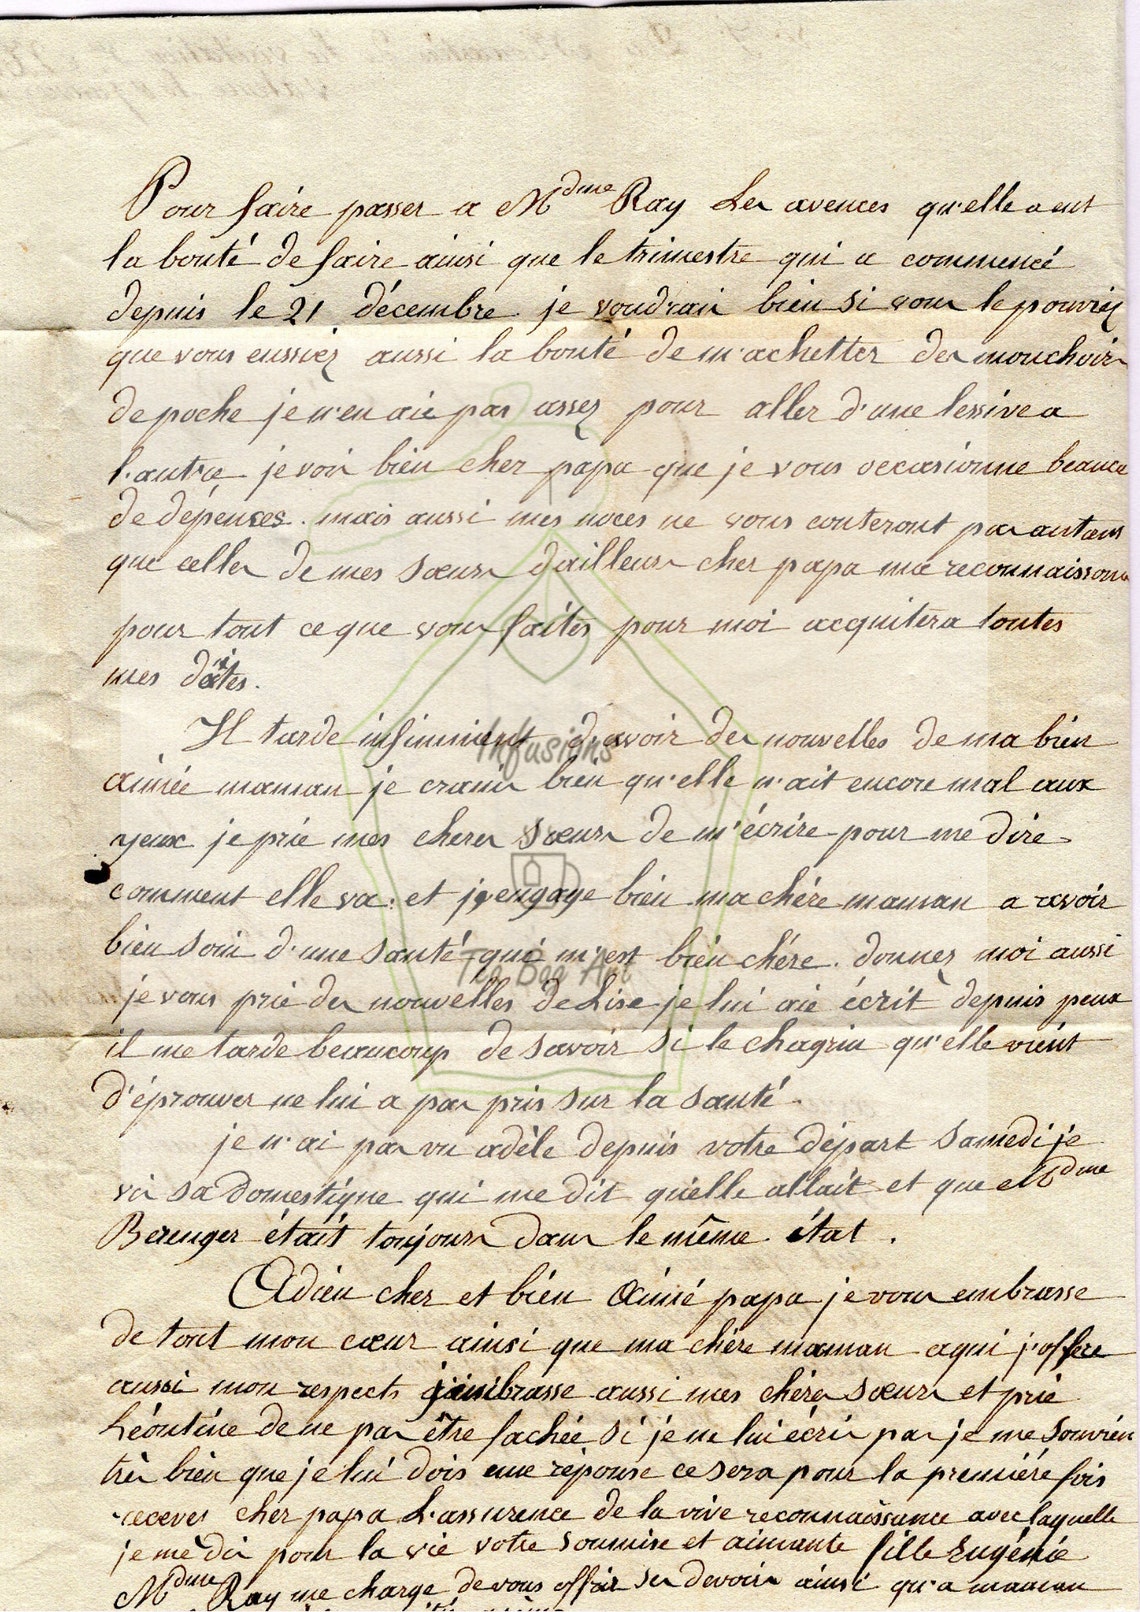 Pour faire passer a M^dme Ray Les avences qu'elle a eut
la bonté de faire ainsi que le trimestre qui a commencé
depuis le 21 décembre je voudrais bien si vous le pouviéz
que vous eussiez aussi la bonté de m'achetter des mouchoirs
de poche je n'en aie pas assez pour aller d'une lessive a
l'autre je vois bien cher papa que je vous occasionne beauco
de dépenses. mais aussi mes noces ne vous couteront pas autans
que celles de mes sœurs d'ailleurs cher papa ma reconnaissance
pour tout ce que vous faites pour moi acquitera toutes
mes dêttes.
Il tarde infiniment d'avoir des nouvelles de ma bien
aimée maman je crains bien qu'elle n'ait encore mal aux
yeux je prie mes cheres sœurs de m'écrire pour me dire
comment elle va. et j'engage bien ma chére maman a avoir
bien soin d'une santé qui m'est bien chére. donnez moi aussi
je vous prie des nouvelles de Lise je lui aie écrit depuis peux
il me tarde beaucoup de savoir si le chagrin qu'elle vient
d'éprouver ne lui a pas pris sur la santé.
je n'ai pas vu adèle depuis votre départ samedi je
vis sa domestique qui me dit qu'elle allait et que M^dme
Berenger était toujours dans le même état.
Adieu cher et bien aimé papa je vous embrasse
de tout mon cœur ainsi que ma chère maman a qui j'offre
aussi mon respects j'embrasse aussi mes chéres sœurs et prie
Léontine de ne pas être fachée si je ne lui écris pas je me souvien
très bien que je lui dois une réponse ce sera pour la première fois
recevez cher papa L'assurence de la vive reconnaissance avec laquelle
je me dis pour la vie votre soumise et aimante fille Eugénie
M^dme Ray me charge de vous offrir ses devoirs ainsi qu'a maman
Infusions
Tea Bag Art